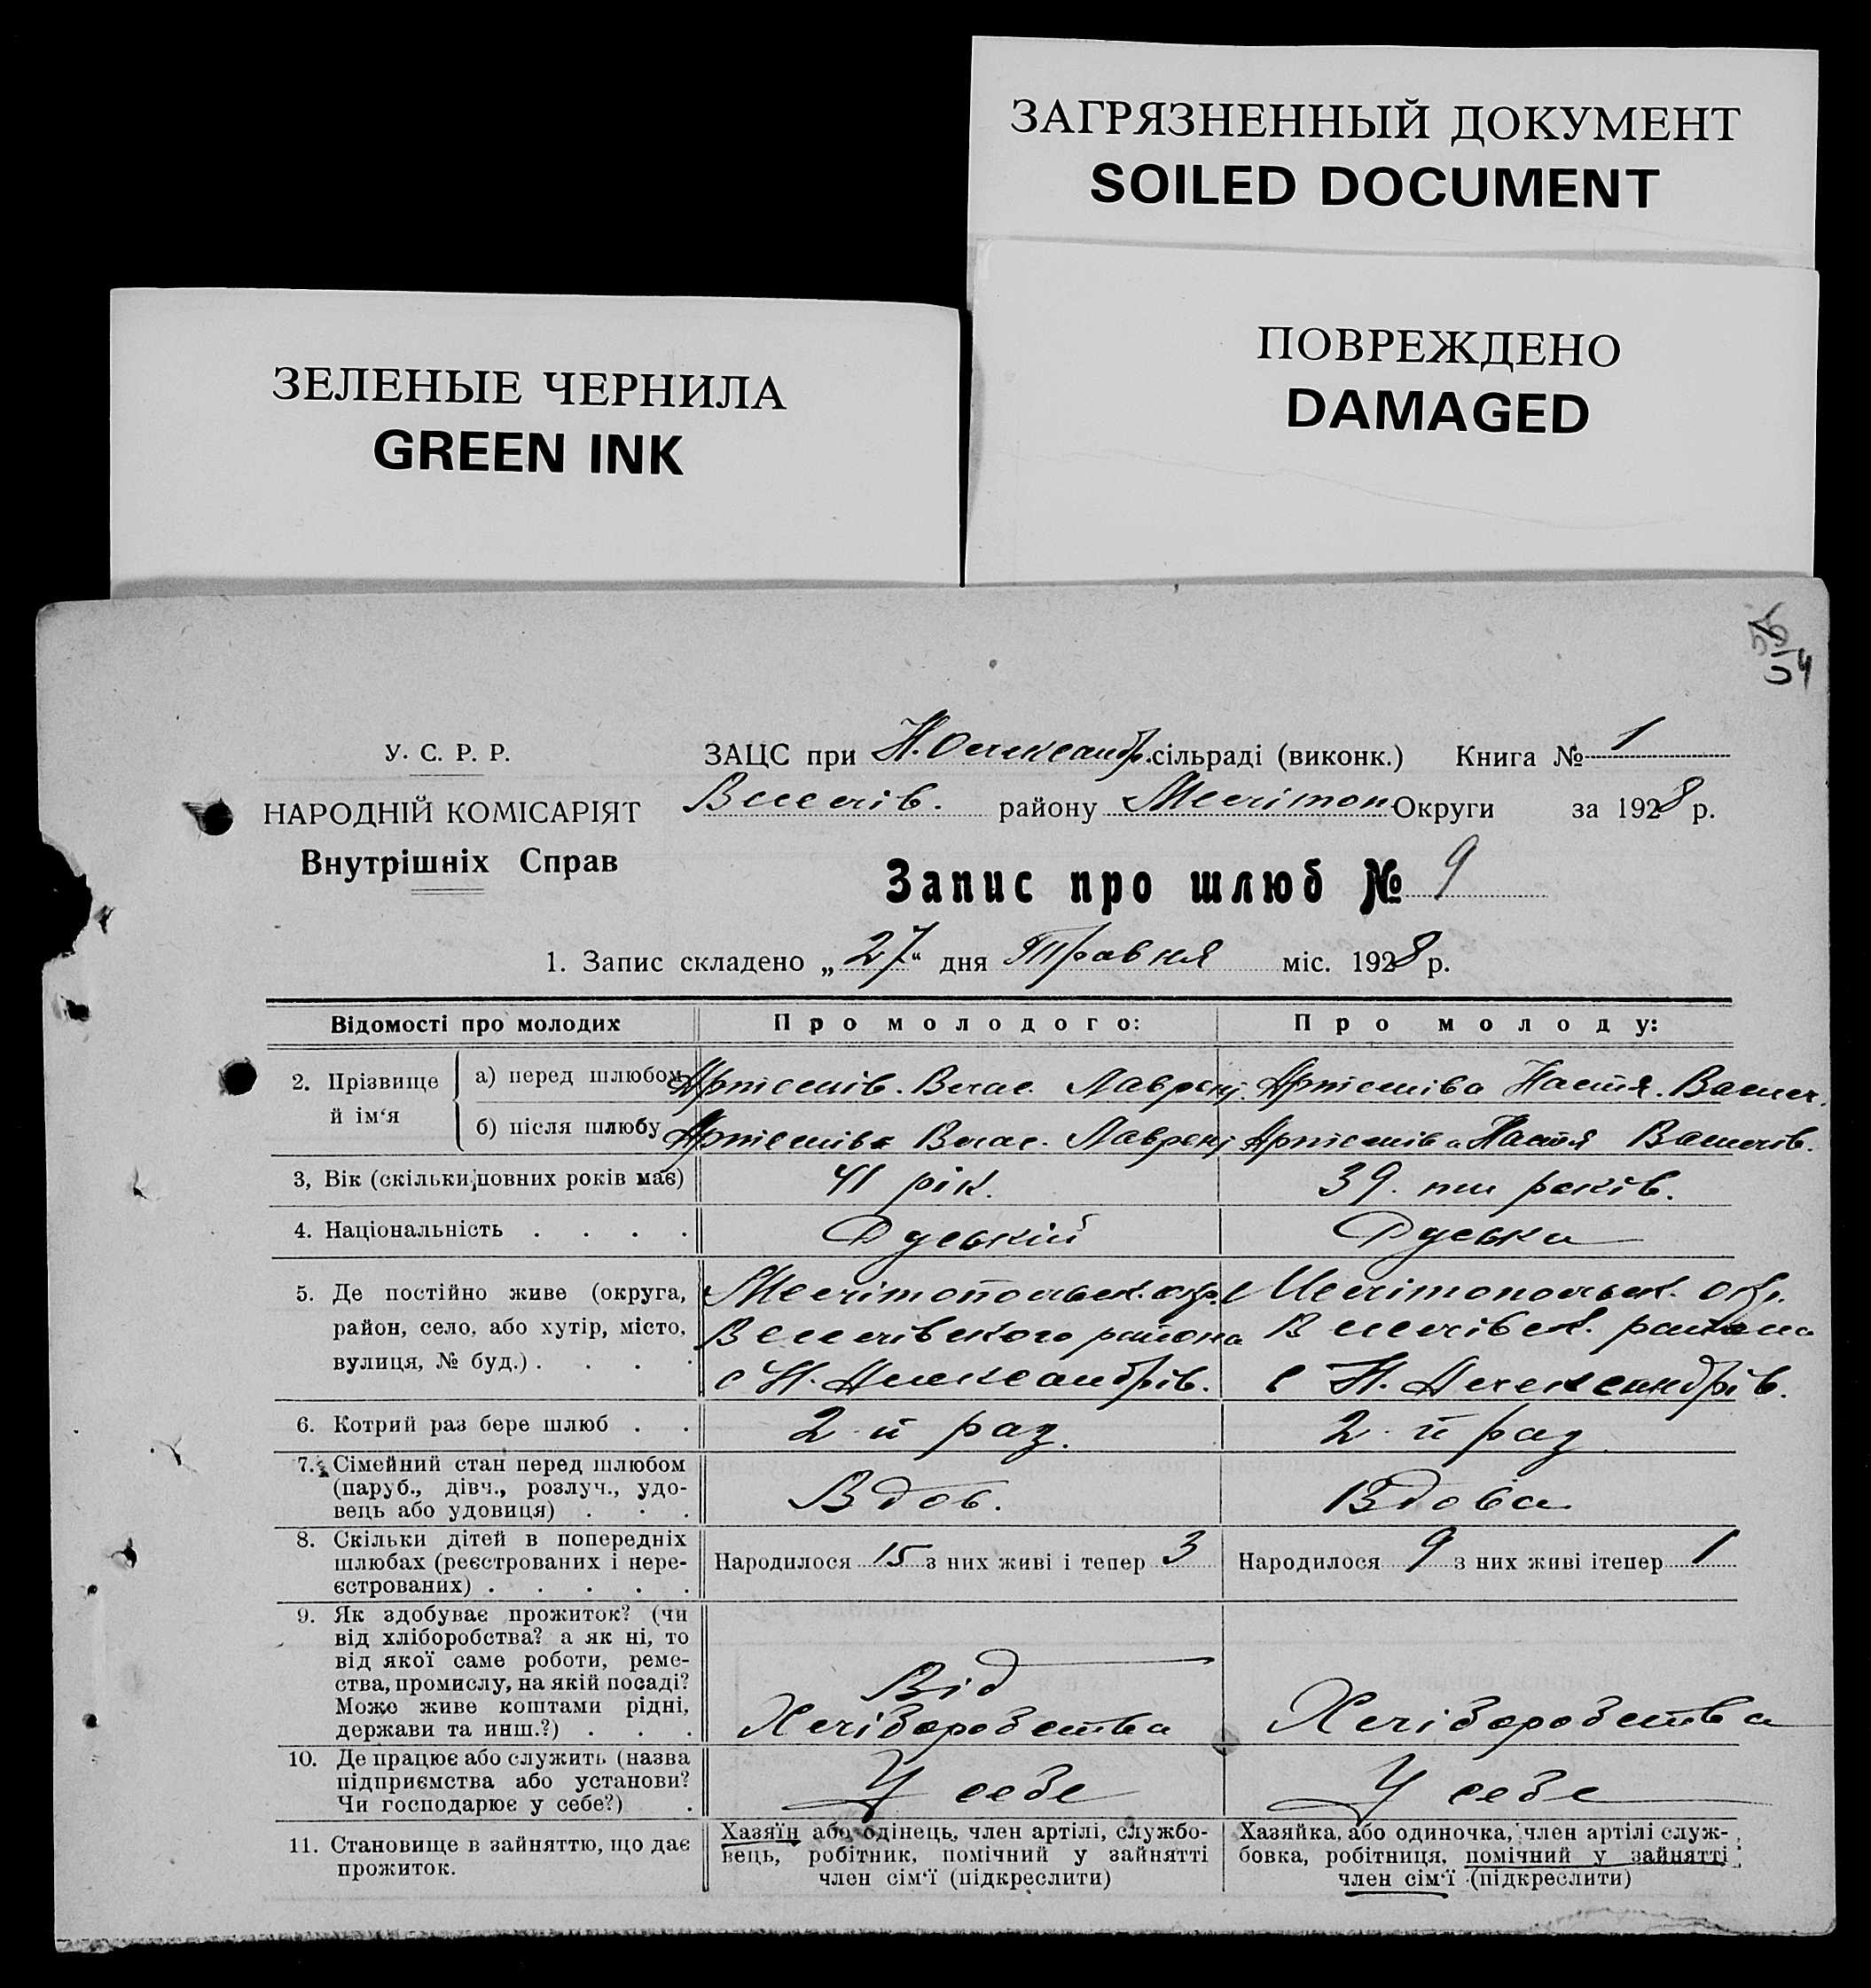 ЗАГРЯЗНЕННЫЙ ДОКУМЕНТ
SOILED DOCUMENT
ПОВРЕЖДЕНО
DAMAGED
ЗЕЛЕНЫЕ ЧЕРНИЛА
GREEN INK
54
У. С. Р. Р.
НАРОДНІЙ КОМІСАРІЯТ
Внутрішніх Справ
ЗАЦС при Н. Олександр. сільраді (виконк.) Книга № 1
Веселів. району Мелітоп Округи за 1928 р.
Запис про шлюб № 9
1. Запис складено „27“ дня Травня міс. 1928 р.
Відомості про молодих Про молодого: Про молоду:
2. Прізвище й ім‘я
а) перед шлюбом Артемів. Влас. Лаврент. Артемива Настя. Васил.
б) після шлюбу Артемів Влас. Лаврент Артемив а Настя Васил­ів.
3, Вік (скільки повних років має) 41 рік. 39. ти років.
4. Національність . . . . Руський Руська
5. Де постійно живе (округа, Мелітопольск. окр. Мелітопольск. окр.
район, село, або хутір, місто, Веселівского района Веселівск. района
вулиця, № буд.) . . . . с Н. Александрів. с Н. Александрів.
6. Котрий раз бере шлюб . . 2 й раз. 2. й раз
7. Сімейний стан перед шлюбом
(паруб., дівч., розлуч., удо-
вець або удовиця) . . . Вдов. Вдова
8. Скільки дітей в попередніх
шлюбах (реєстрованих і нере- Народилося 15 з них живі і тепер 3 Народилося 9 з них живі ітепер 1
єстрованих) . . . . .
9. Як здобуває прожиток? (чи
від хліборобства? а як ні, то
від якої саме роботи, реме-
ства, промислу, на якій посаді? Від
Може живе коштами рідні, Хліборобства Хліборобства
держави та инш.?) . . .
10. Де працює або служить (назва
підприємства або установи? У себе У себе
Чи господарює у себе?) .
11. Становище в зайняттю, що дає
прожиток.
Хазяїн або одінець, член артілі, службо-
вець, робітник, помічний у зайнятті
член сім‘ї (підкреслити)
Хазяйка, або одиночка, член артілі служ-
бовка, робітниця, помічний у зайнятті
член сім‘ї (підкреслити)